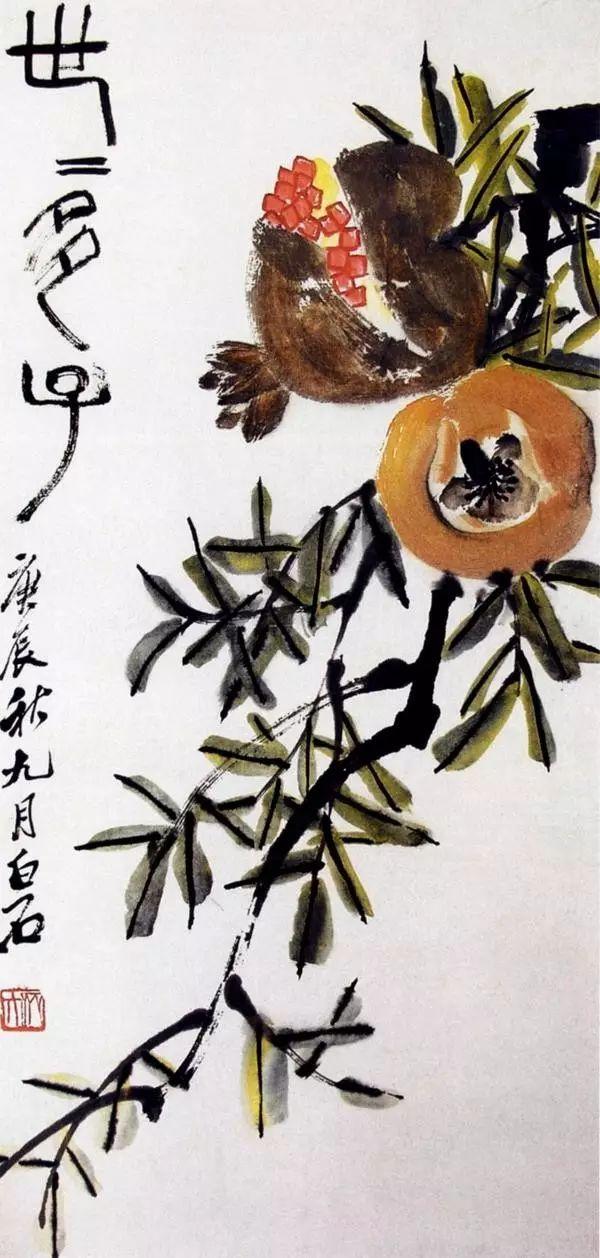 世〻多子
庚辰秋九月白石